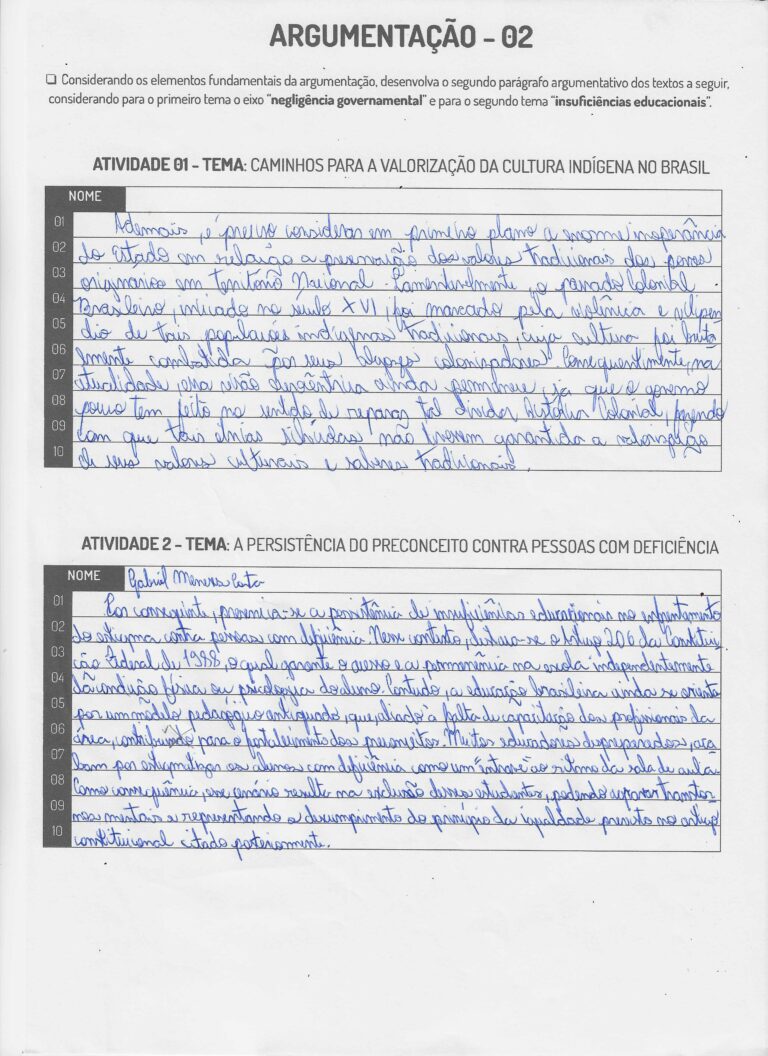 ARGUMENTAÇÃO - 02
❑ Considerando os elementos fundamentais da argumentação, desenvolva o segundo parágrafo argumentativo dos textos a seguir,
considerando para o primeiro tema o eixo "negligência governamental" e para o segundo tema "insuficiências educacionais".
ATIVIDADE 01 - TEMA: CAMINHOS PARA A VALORIZAÇÃO DA CULTURA INDÍGENA NO BRASIL
NOME
01 Ademais, é preciso considerar em primeiro plano a enorme inoperância
02 do Estado em relação a preservação dos valores tradicionais dos povos
03 originários em território Nacional. Lamentavelmente, o passado Colonial
04 Brasileiro, iniciado no século XVI, foi marcado pela violência e vilipen
05 dio de tais populações indígenas tradicionais, cuja cultura foi bruta
06 lmente combatida por seus colonizadores. Consequentemente, na
07 atualidade, essa visão ainda permanece, já que o governo
08 pouco tem feito no sentido de reparar tal dívida histórica Colonial, fazendo
09 com que tais etnias não tivessem garantida a valorização
10 de seus valores culturais e saberes tradicionais.
ATIVIDADE 2 - TEMA: A PERSISTÊNCIA DO PRECONCEITO CONTRA PESSOAS COM DEFICIÊNCIA
NOME Gabriel Menezes Costa
01 Por conseguinte, presencia-se a persistência de insuficiências educacionais no enfrentamento
02 do estigma contra pessoas com deficiência. Nesse contexto, destaca-se o artigo 206 da Constitui-
03 ção Federal de 1988, o qual garante o acesso e a permanência na escola independentemente
04 da condição física ou psicologia do aluno. Contudo, a educação brasileira ainda se orienta
05 por um modelo pedagógico antiquado, que, aliado à falta de capacitação dos profissionais da
06 área, contribuindo para o fortalecimento dos preconceitos. Muitos educadores despreparados, aca
07 bam por estigmatizar os alunos com deficiência como um "entrave" ao ritmo da sala de aula.
08 Como consequência, esse cenário resulta na exclusão desses estudantes, podendo causar transtor-
09 nos mentais e representando o descumprimento do princípio da igualdade previsto no artigo
10 constitucional citado posteriormente.